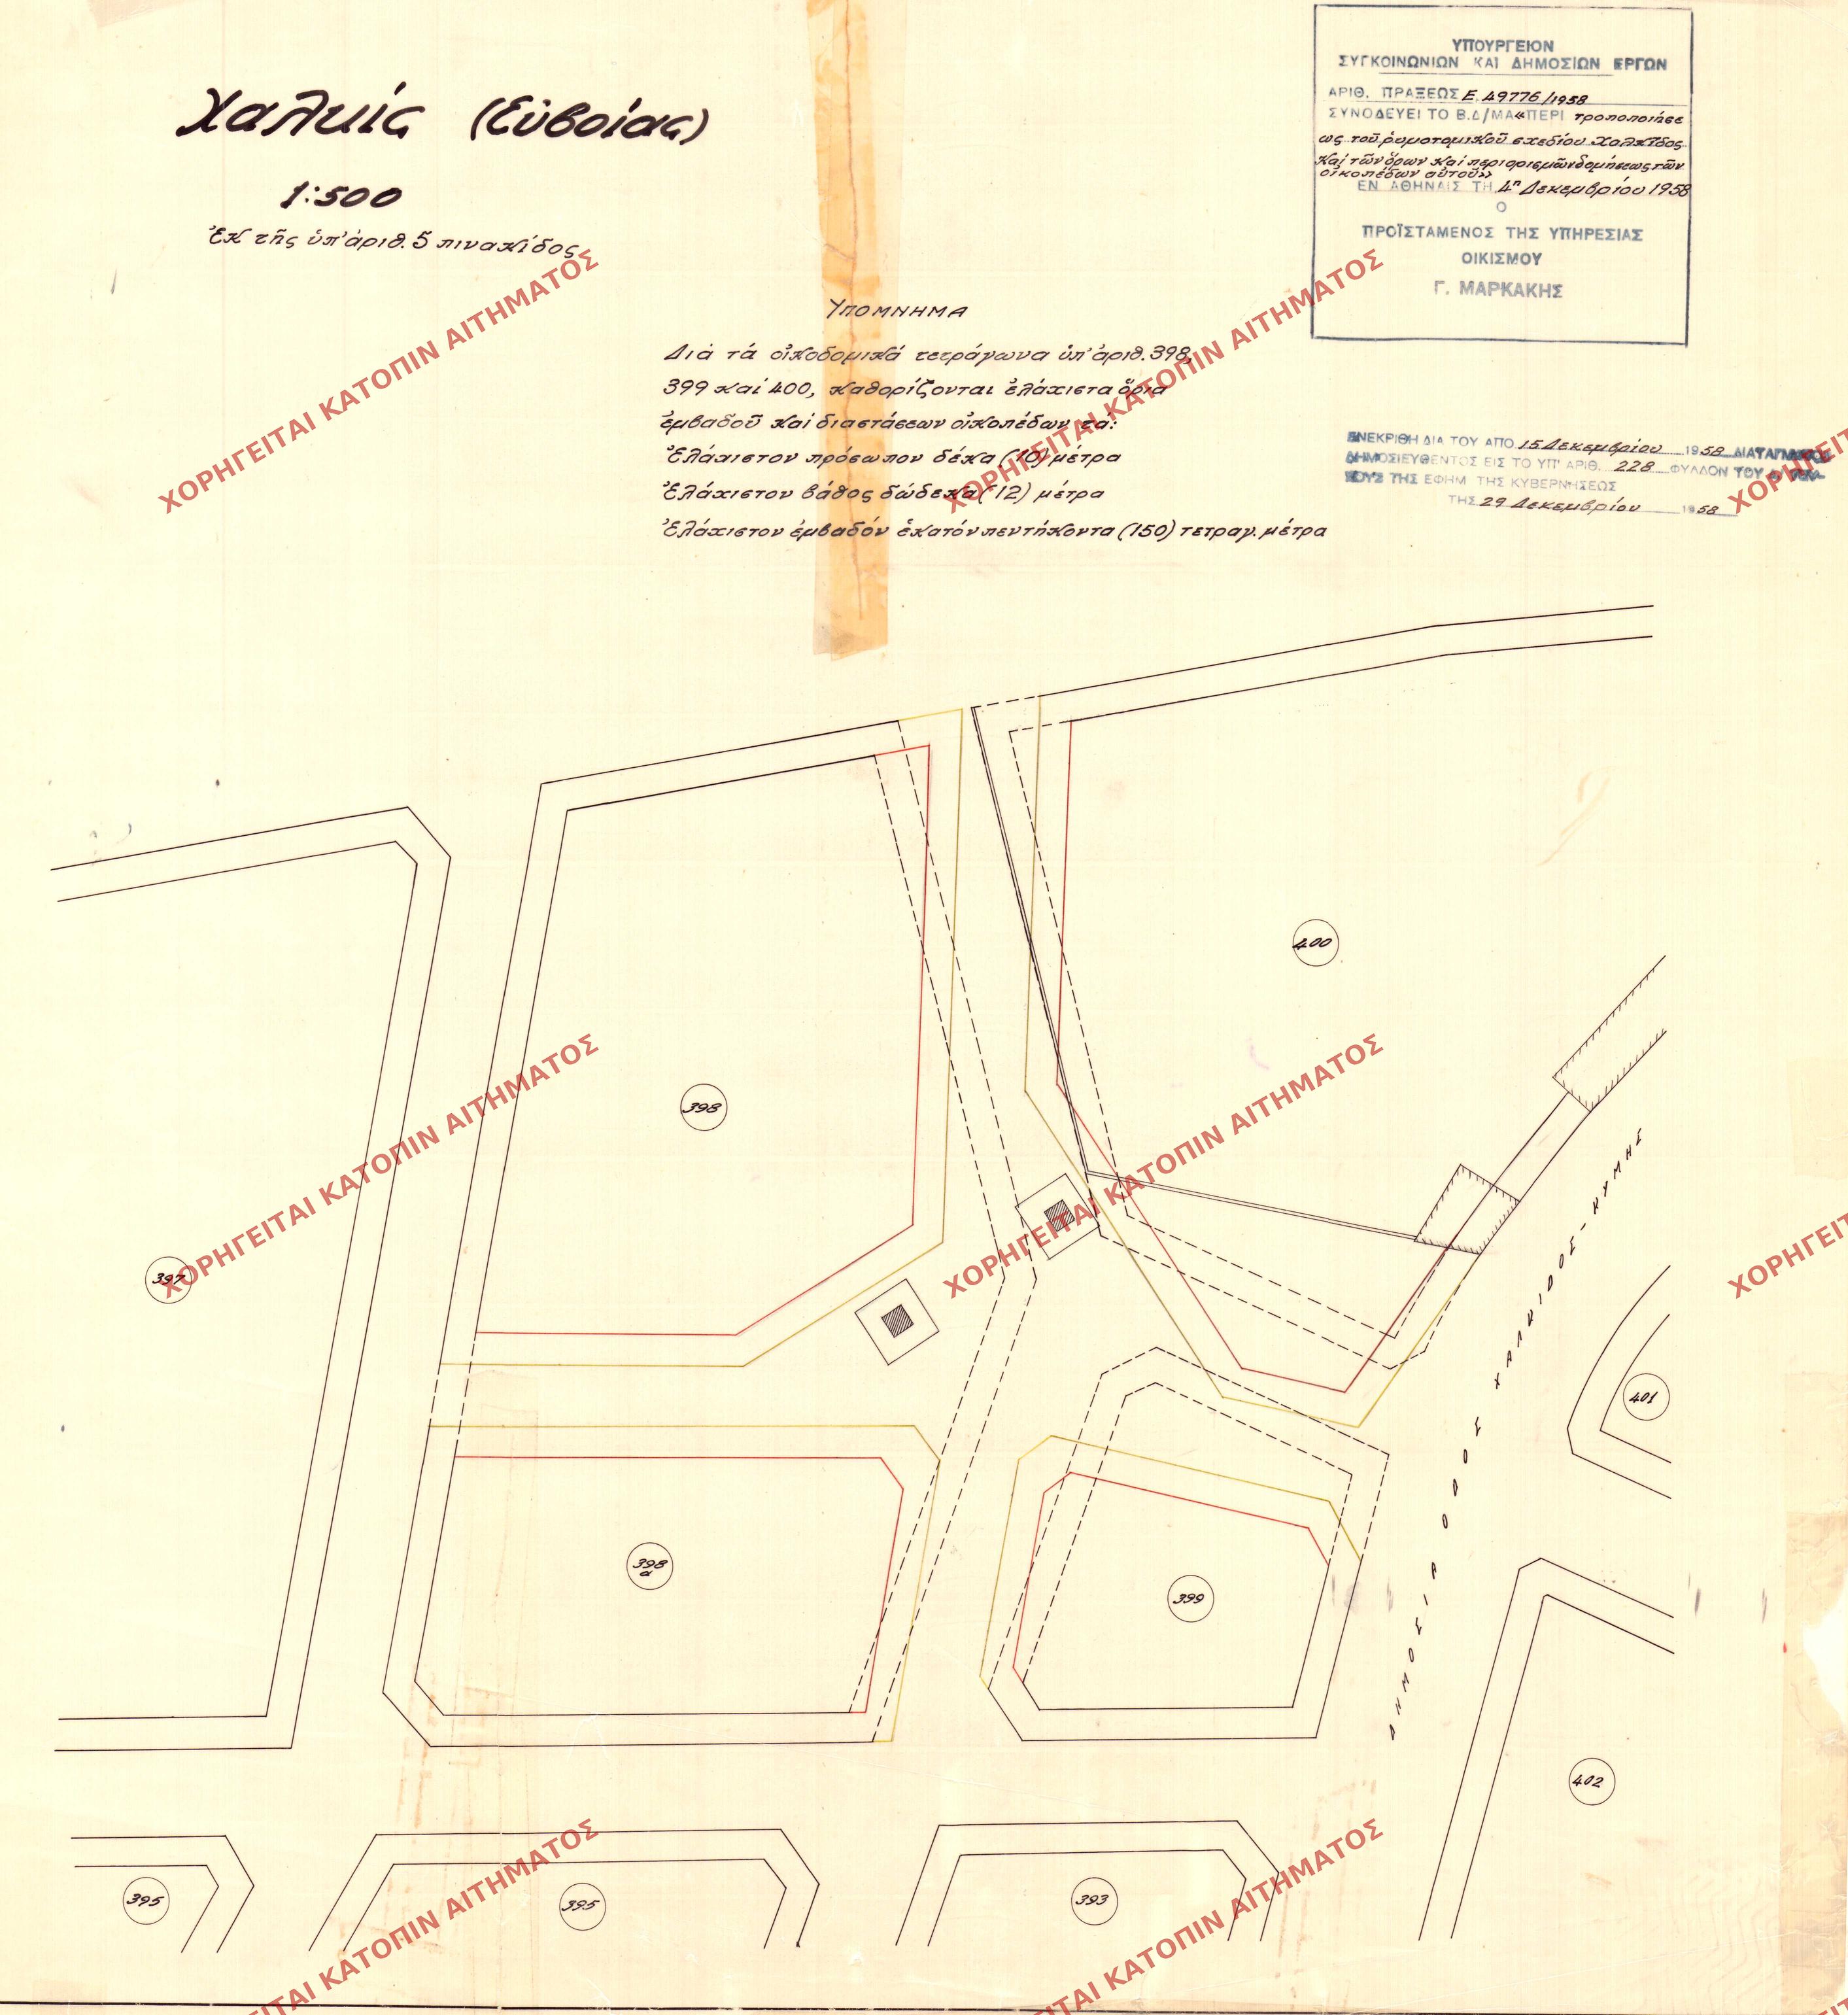 Χαλκίς (Εὐβοίας)
1:500
Ἐκ τῆς ὑπ' ἀριθ. 5 πινακίδος
ΥΠΟΥΡΓΕΙΟΝ
ΣΥΓΚΟΙΝΩΝΙΩΝ ΚΑΙ ΔΗΜΟΣΙΩΝ ΕΡΓΩΝ
ΑΡΙΘ. ΠΡΑΞΕΩΣ Ε. 49776/1958
ΣΥΝΟΔΕΥΕΙ ΤΟ Β.Δ/ΜΑ «ΠΕΡΙ τροποποιήσε
ως τοῦ ρυμοτομικοῦ σχεδίου Χαλκίδος
καί τῶν ὅρων καί περιορισμῶν δομήσεως τῶν
οἰκοπέδων αὐτοῦ»
ΕΝ ΑΘΗΝΑΙΣ ΤΗ 4ῃ Δεκεμβρίου 1958
Ο
ΠΡΟΪΣΤΑΜΕΝΟΣ ΤΗΣ ΥΠΗΡΕΣΙΑΣ
ΟΙΚΙΣΜΟΥ
Γ. ΜΑΡΚΑΚΗΣ
ΥΠΟΜΝΗΜΑ
Διά τά οἰκοδομικά τετράγωνα ὑπ' ἀριθ. 398,
399 καί 400, καθορίζονται ἐλάχιστα ὅρια
ἐμβαδοῦ καί διαστάσεων οἰκοπέδων τά:
Ἐλάχιστον πρόσωπον δέκα (10) μέτρα
Ἐλάχιστον βάθος δώδεκα (12) μέτρα
Ἐλάχιστον ἐμβαδόν ἑκατόν πεντήκοντα (150) τετραγ. μέτρα
ΕΝΕΚΡΙΘΗ ΔΙΑ ΤΟΥ ΑΠΟ 15 Δεκεμβρίου 1958 ΔΙΑΤΑΓΜΑΤΟΣ
ΔΗΜΟΣΙΕΥΘΕΝΤΟΣ ΕΙΣ ΤΟ ΥΠ' ΑΡΙΘ. 228 ΦΥΛΛΟΝ ΤΟΥ
ΤΗΣ ΕΦΗΜ. ΤΗΣ ΚΥΒΕΡΝΗΣΕΩΣ
ΤΗΣ 29 Δεκεμβρίου 1958
ΧΟΡΗΓΕΙΤΑΙ ΚΑΤΟΠΙΝ ΑΙΤΗΜΑΤΟΣ
ΧΟΡΗΓΕΙΤΑΙ ΚΑΤΟΠΙΝ ΑΙΤΗΜΑΤΟΣ
ΧΟΡΗΓΕΙΤ
400
398
397
ΧΟΡΗΓΕΙΤΑΙ ΚΑΤΟΠΙΝ ΑΙΤΗΜΑΤΟΣ
ΧΟΡΗΓΕΙΤΑΙ ΚΑΤΟΠΙΝ ΑΙΤΗΜΑΤΟΣ
ΧΟΡΗΓΕΙ
ΔΗΜΟΣΙΑ ΟΔΟΣ ΧΑΛΚΙΔΟΣ - ΚΥΜΗΣ
401
398
α
399
402
395
395
393
ΕΙΤΑΙ ΚΑΤΟΠΙΝ ΑΙΤΗΜΑΤΟΣ
ΕΙΤΑΙ ΚΑΤΟΠΙΝ ΑΙΤΗΜΑΤΟΣ